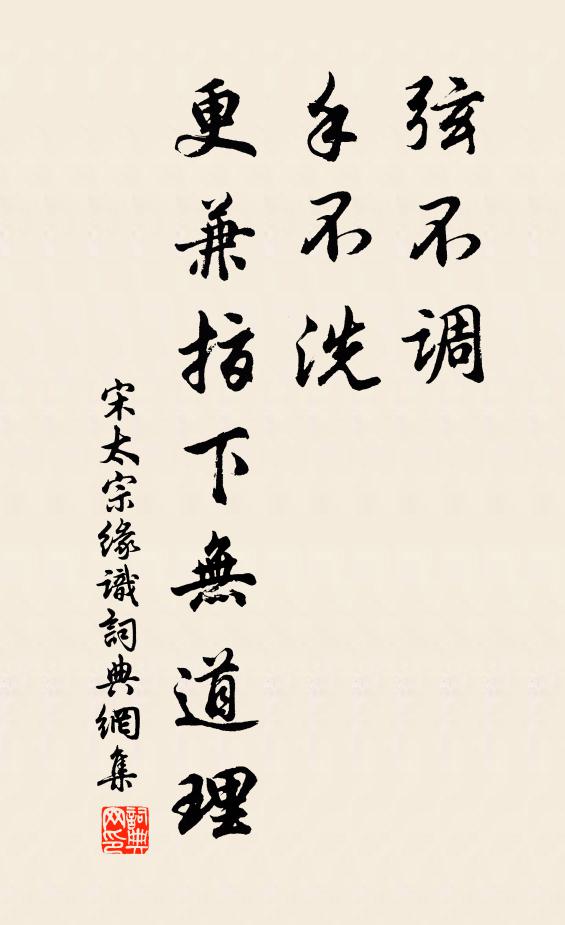 弦不調
手不洗
更兼指下無道理
宋太宗緣識詞典網集
詞典網印